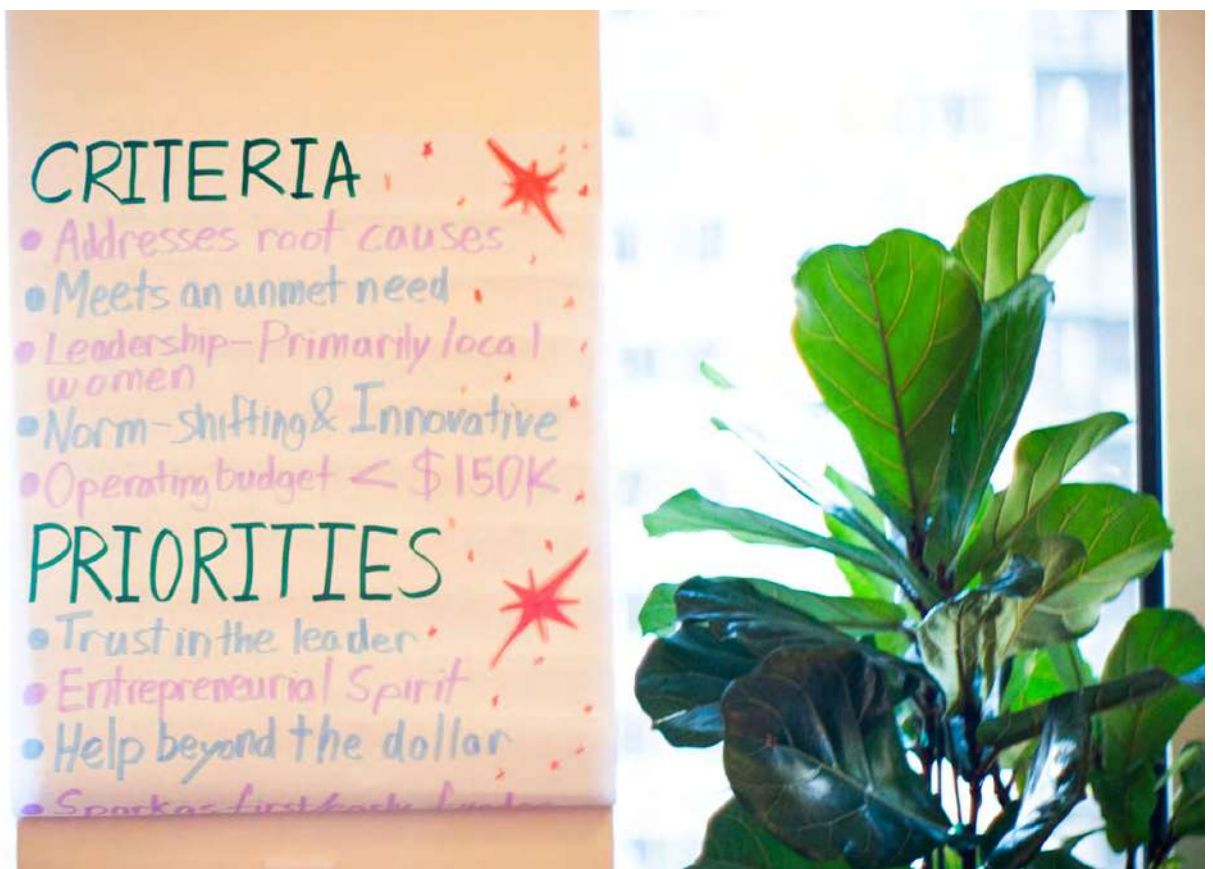 CRITERIA
• Addresses root causes
• Meets an unmet need
• Leadership-Primarily local
women
• Norm-shifting & Innovative
• Operating budget < $150K
PRIORITIES
• Trust in the leader
• Entrepreneurial Spirit
• Help beyond the dollar
• Spark as first/early funder